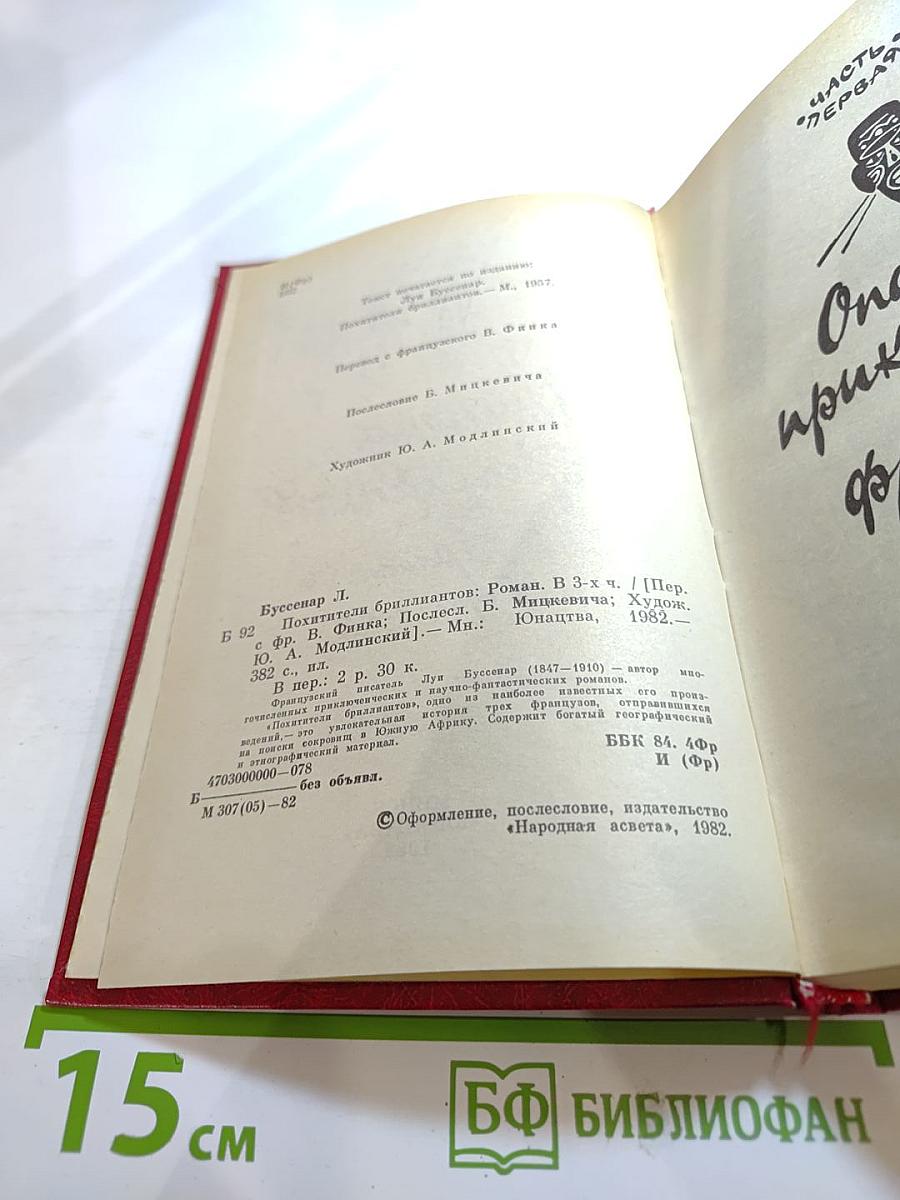 Текст печатается по изданию:
Луи Буссенар.
Похитители бриллиантов.— М., 1957.
Перевод с французского В. Финка
Послесловие Б. Мицкевича
Художник Ю. А. Модлинский
Буссенар Л.
Б 92 Похитители бриллиантов: Роман. В 3-х ч. / [Пер.
с фр. В. Финка; Послесл. Б. Мицкевича; Худож.
Ю. А. Модлинский].— Мн.: Юнацтва, 1982.—
382 с., ил.
В пер.: 2 р. 30 к.
Французский писатель Луи Буссенар (1847—1910) — автор мно-
гочисленных приключенческих и научно-фантастических романов.
«Похитители бриллиантов», одно из наиболее известных его произ-
ведений,— это увлекательная история трех французов, отправившихся
на поиски сокровищ в Южную Африку. Содержит богатый географический
и этнографический материал.
ББК 84. 4Фр
И (Фр)
4703000000—078
Б————без объявл.
М 307(05)—82
©Оформление, послесловие, издательство
«Народная асвета», 1982.
•ЧАСТЬ•
•ПЕРВАЯ
15 см
БФ БИБЛИОФАН